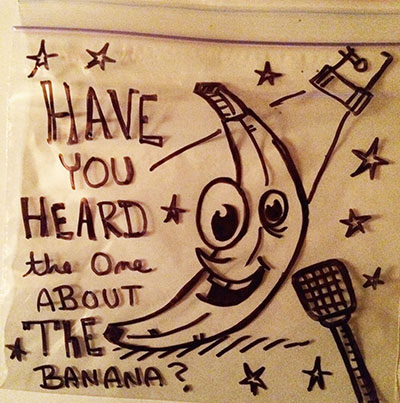 HAVE
YOU
HEARD
the One
ABOUT
THE
BANANA?